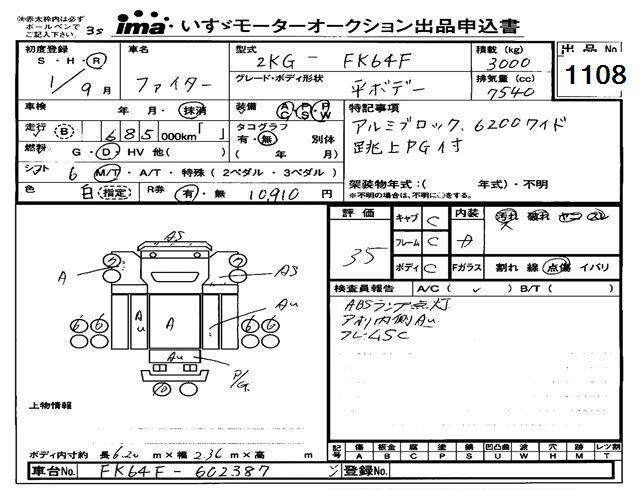 ※赤太枠内は必ず
ボールペンで
ご記入下さい。
3S
ima いすゞモーターオークション出品申込書
初度登録
S・H・R
1/9月
車名
ファイター
型式
2KG- FK64F
グレード・ボディ形状
平ボデー
積載(kg)
3000
排気量(cc)
7540
出品No
1108
車検 年・月・抹消
走行 B 685,000km「 」
燃料 G・D・HV 他( )
シフト 6 M/T・A/T・特殊(2ペダル・3ペダル)
色 白 指定 R券 有・無 10,910 円
装備 AC PS PW
タコグラフ
有・無 別体
( 年 月)
特記事項
アルミブロック、6200ワイド
跳上PG付
架装物年式:( 年式)・不明
※不明の場合は、不明に○をする。
評価
3.5
キャブ C
フレーム C
ボディ C
内装 A
汚れ 破れ ヤニ スレ
Fガラス 割れ 線 点傷 イバリ
検査員報告 A/C( ✓ ) B/T( )
ABSランプ点灯
アオリ内側Au
フレームSC
AS
A
AS
Au
A
Au
Au
P/G
6 6 6 6
D
上物情報
ボディ内寸約 長6.20 m×幅 2.36 m×高 m
記号
傷 A
板金 B
腐 C
塗 P
錆 S
凹凸曲 U
波 W
穴 H
跡 M
レツ割 T
車台No. FK64F-602387
登録No.